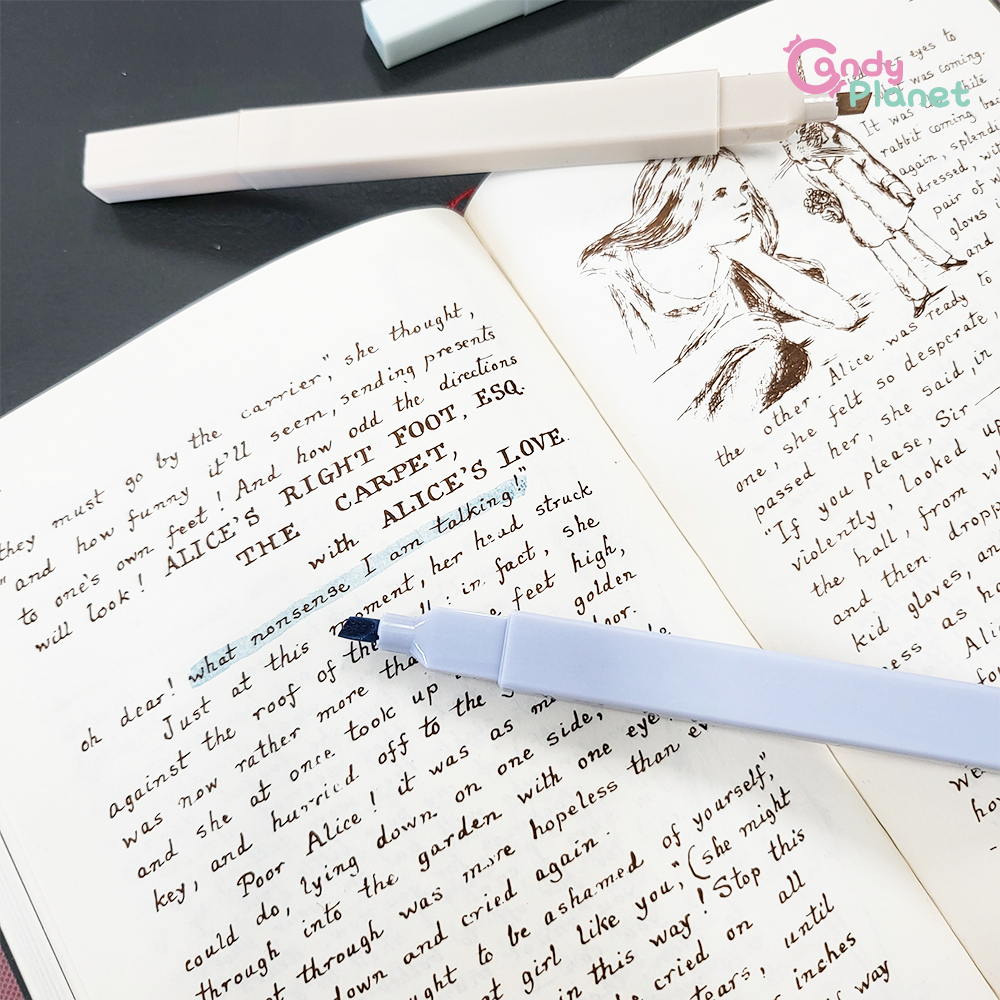 Candy
Planet
must go by the carrier," she thought,
and how funny it'll seem, sending presents
to one's own feet! And how odd the directions
will look! ALICE'S RIGHT FOOT, ESQ.
THE CARPET,
with ALICE'S LOVE.
oh dear! what nonsense I am talking!"
Just at this moment, her head struck
against the roof of the in fact, she
was now rather more feet high,
and she at once took up golden
key, and hurried off to the
Poor Alice! it was as
could do, lying down on one side,
through into the garden with one eye
through was more hopeless than
down and cried again.
to be ashamed of yourself,"
girl like you," (she might
in this way! Stop this
cried on all
tears, until
inches
way
eyes to
was coming.
It was
rabbit coming
again,
dressed,
pair of
gloves
and
to
the other. Alice was ready
one, she felt so desperate,
passed her, she said, in
"If you please, Sir—
violently, looked up
the hall, from
and then
kid gloves,
as